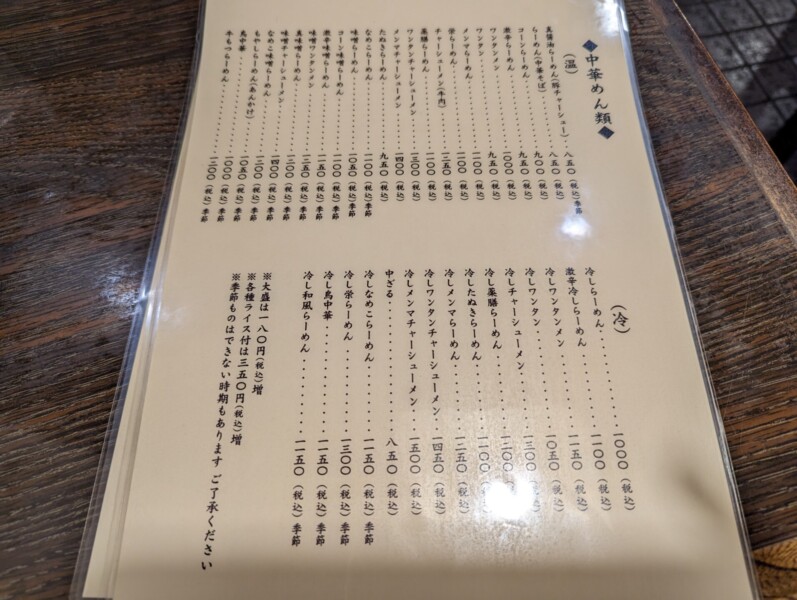 ◆中華めん類◆
(温)
真醤油らーめん(豚チャーシュー)‥八五〇(税込)季節
らーめん(中華そば)‥‥‥八五〇(税込)
コーンらーめん‥‥‥九〇〇(税込)
激辛らーめん‥‥‥九五〇(税込)
ワンタンメン‥‥‥一〇〇〇(税込)
ワンタン‥‥‥九五〇(税込)
メンマらーめん‥‥‥一一〇〇(税込)
栄らーめん‥‥‥一一〇〇(税込)
チャーシューメン(牛肉)‥‥‥一二五〇(税込)
薬膳らーめん‥‥‥一一〇〇(税込)
ワンタンチャーシューメン‥‥‥一三〇〇(税込)
メンマチャーシューメン‥‥‥一四〇〇(税込)
たぬきらーめん‥‥‥九五〇(税込)
なめこらーめん‥‥‥一一〇〇(税込)季節
味噌らーめん‥‥‥一〇五〇(税込)季節
コーン味噌らーめん‥‥‥一一〇〇(税込)季節
激辛味噌らーめん‥‥‥一一五〇(税込)季節
味噌ワンタンメン‥‥‥一二五〇(税込)季節
真味噌らーめん‥‥‥一二〇〇(税込)季節
味噌チャーシューメン‥‥‥一四〇〇(税込)季節
なめこ味噌らーめん‥‥‥一二〇〇(税込)季節
もやしらーめん(あんかけ)‥‥‥一〇五〇(税込)季節
鳥中華‥‥‥一〇〇〇(税込)季節
牛もつらーめん‥‥‥一三〇〇(税込)季節
(冷)
冷しらーめん‥‥‥一〇〇〇(税込)
激辛冷しらーめん‥‥‥一一〇〇(税込)
冷しワンタンメン‥‥‥一一五〇(税込)
冷しワンタン‥‥‥一〇五〇(税込)
冷しチャーシューメン‥‥‥一三〇〇(税込)
冷し薬膳らーめん‥‥‥一二〇〇(税込)
冷したぬきらーめん‥‥‥一一〇〇(税込)
冷しメンマらーめん‥‥‥一二五〇(税込)
冷しワンタンチャーシューメン‥‥‥一四五〇(税込)
冷しメンマチャーシューメン‥‥‥一五〇〇(税込)
中ざる‥‥‥八五〇(税込)
冷しなめこらーめん‥‥‥一一五〇(税込)季節
冷し栄らーめん‥‥‥一三〇〇(税込)季節
冷し鳥中華‥‥‥一一五〇(税込)季節
冷し和風らーめん‥‥‥一一五〇(税込)季節
※大盛は一八〇円(税込)増
※各種ライス付は三五〇円(税込)増
※季節ものはできない時期もあります ご了承ください